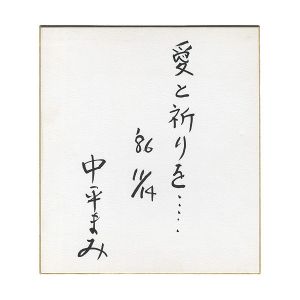 愛と祈りを……
'86
11/14
中平まみ